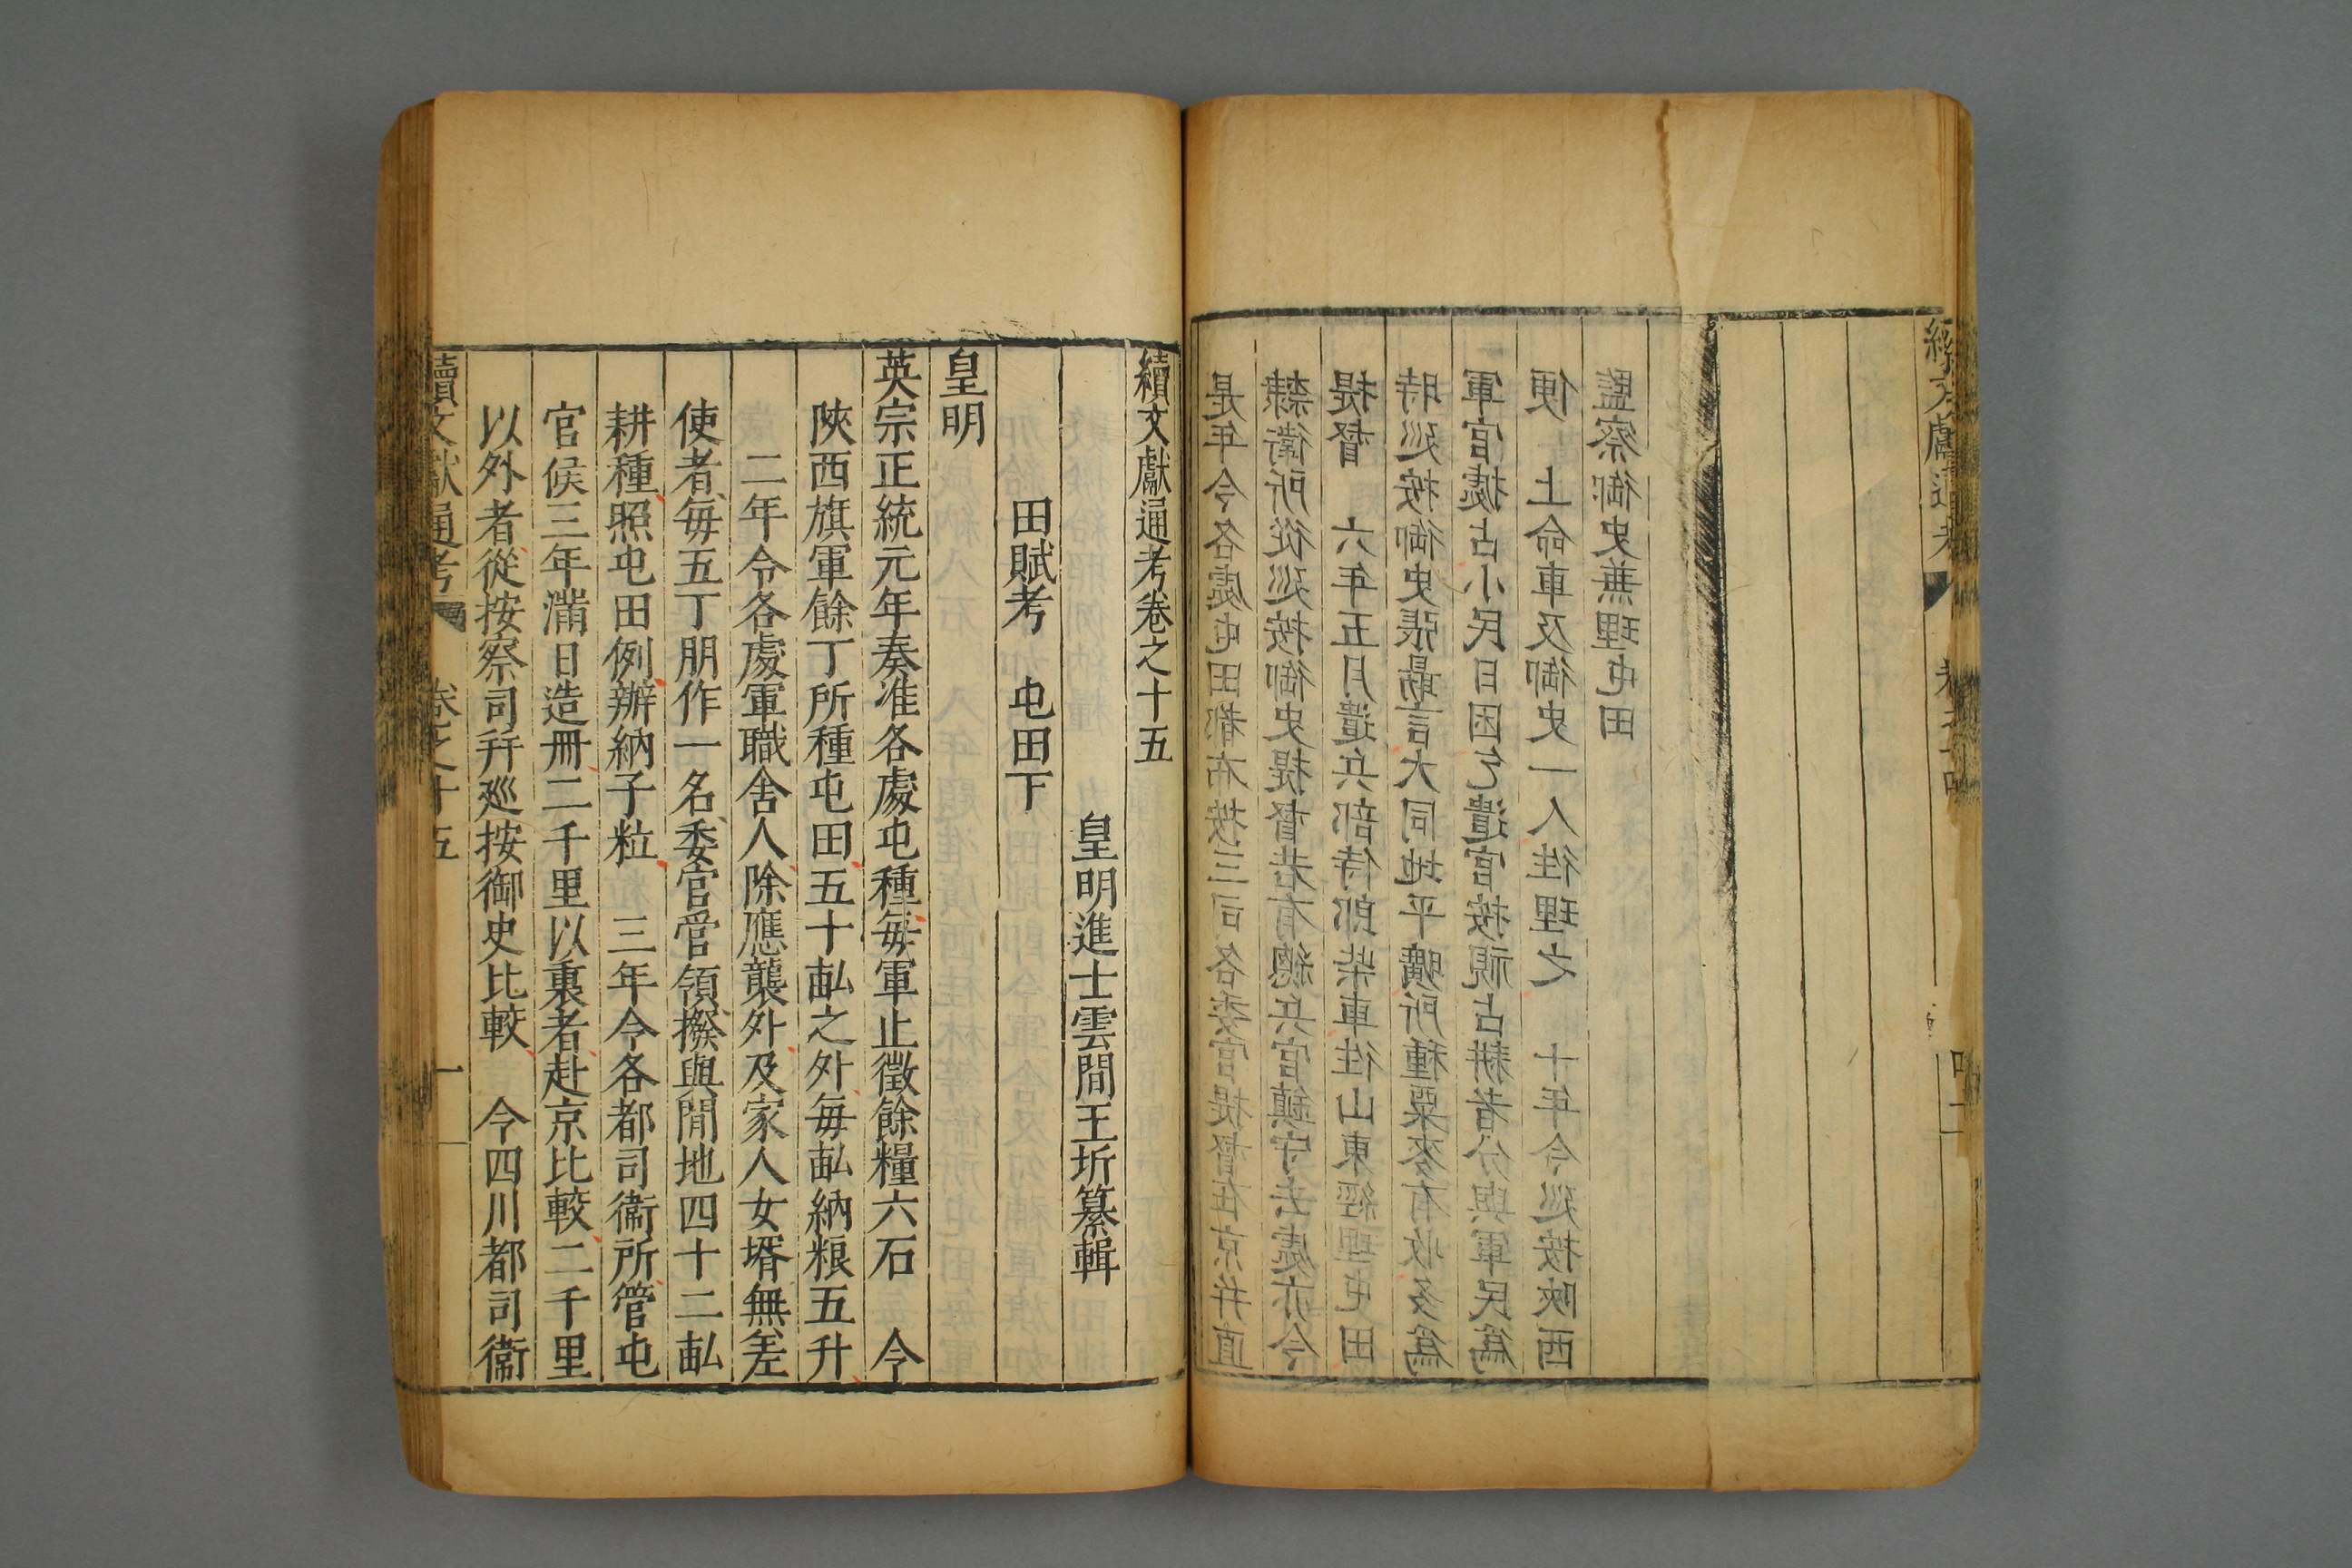 續文獻通考
是年令各處屯田都布按三司各委官提督在京并直
隸衛所從廵按御史提督若有總兵官鎮守去處亦令
提督　六年五月遣兵部侍郎柴車往山東經理屯田
時廵按御史張勗言大同地平曠所種粟麥有收多爲
軍官㨿占小民日困乞遣官按視占耕者分與軍民爲
便　上命車及御史一人往理之　十年令廵按陝西
監察御史兼理屯田
續文獻通考卷之十五
皇明進士雲間王圻纂輯
田賦考　屯田下
皇明
英宗正統元年奏准各處屯種每軍止徵餘糧六石　令
陝西旗軍餘丁所種屯田五十畝之外每畝納粮五升
二年令各處軍職舍人除應襲外及家人女壻無差
使者每五丁朋作一名委官管領撥與閒地四十二畝
耕種照屯田例辦納子粒　三年令各都司衞所管屯
官候三年滿日造冊二千里以裏者赴京比較二千里
以外者從按察司幷廵按御史比較　令四川都司衞
續文獻通考　卷之十五　一